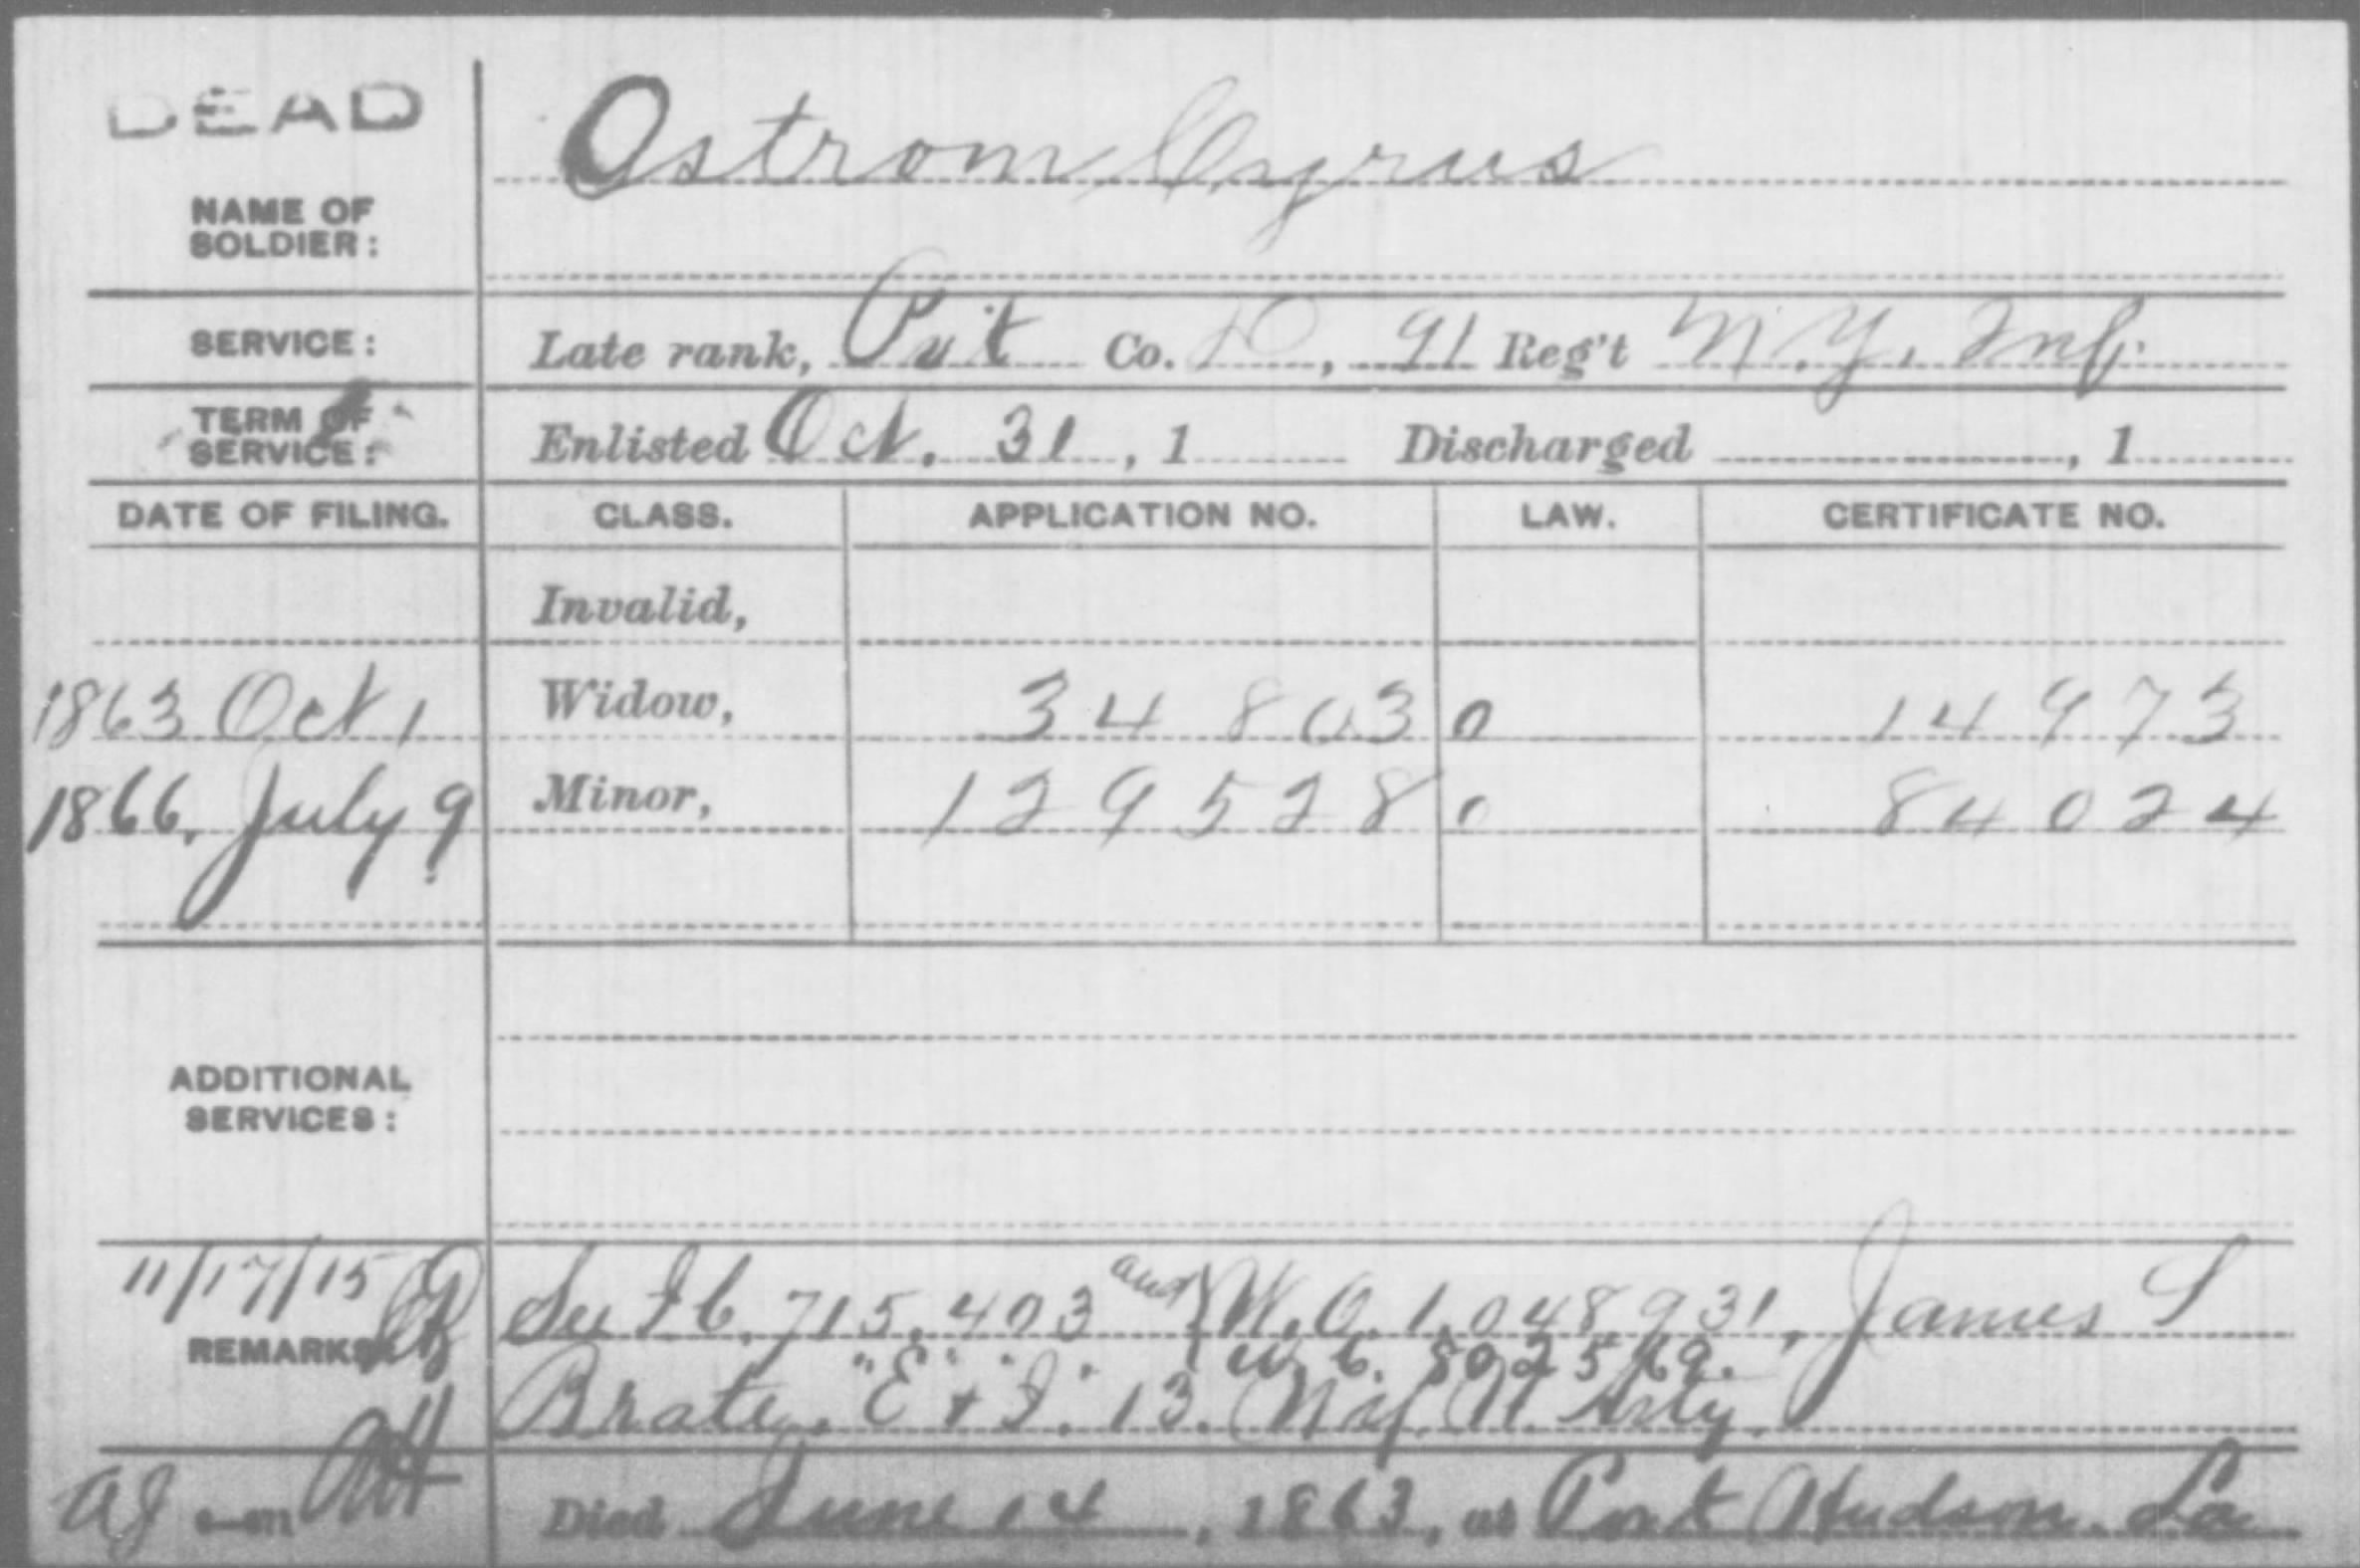 DEAD
Ostrom Cyrus
NAME OF
SOLDIER:
SERVICE: Late rank, Pvt Co. D, 91 Reg't N.Y. Inf.
TERM OF
SERVICE: Enlisted Oct. 31, 1 Discharged , 1
DATE OF FILING. CLASS. APPLICATION NO. LAW. CERTIFICATE NO.
Invalid,
1863 Oct 1 Widow, 34 803 0 14 973
1866. July 9 Minor, 129528 0 84024
ADDITIONAL
SERVICES:
11/17/15 See I C. 715.403 and W.O. 1.048931, James S
REMARKS W.C. 802569.
Brate. "E + I." 13. N.Y. H. Arty.
Died June 14, 1863, at Port Hudson. La